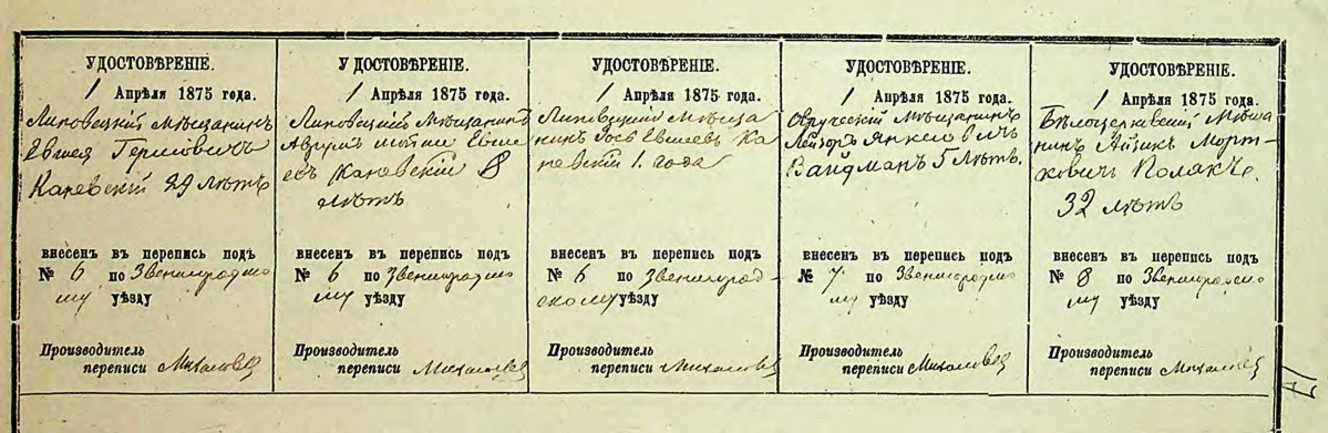 УДОСТОВѢРЕНІЕ.
1 Апрѣля 1875 года.
Липовецкій Мѣщанинъ
Евшея Гершовичъ
Каневскій 29 лѣтъ
внесенъ въ перепись подъ
№ 6 по Звенигородско
му уѣзду
Производитель
переписи
УДОСТОВѢРЕНІЕ.
1 Апрѣля 1875 года.
Липовецкій Мѣщанинъ
Аврумъ Евше
евъ Каневскій 8
лѣтъ
внесенъ въ перепись подъ
№ 6 по Звенигородско
му уѣзду
Производитель
переписи
УДОСТОВѢРЕНІЕ.
1 Апрѣля 1875 года.
Липовецкій Мѣща
нинъ Іось Евшеевъ Ка
невскій 1. года
внесенъ въ перепись подъ
№ 6 по Звенигород-
скому уѣзду
Производитель
переписи
УДОСТОВѢРЕНІЕ.
1 Апрѣля 1875 года.
Овруческій Мѣщанинъ
Лейзоръ Янкелевичъ
Вайдманъ 5 Лѣтъ.
внесенъ въ перепись подъ
№ 7 по Звенигородско
му уѣзду
Производитель
переписи
УДОСТОВѢРЕНІЕ.
1 Апрѣля 1875 года.
Бѣлоцерковскій Мѣща
нинъ Айзикъ Морт-
ковичъ Полякъ.
32 лѣтъ
внесенъ въ перепись подъ
№ 8 по Звенигородско
му уѣзду
Производитель
переписи